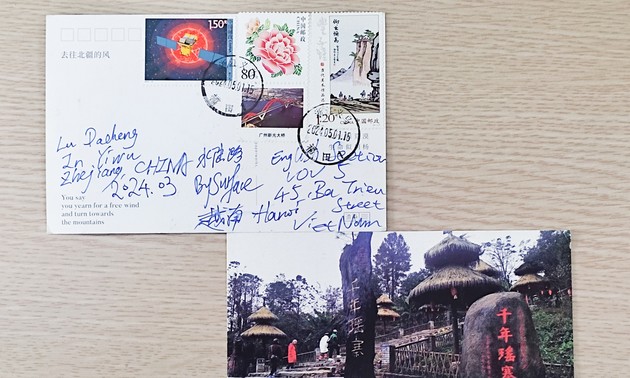 去往北疆的风
1.50元
80分
中国邮政
CHINA
广州新光大桥
1.20元
中国邮政
2024.05.01.15
2024.05.01.15
Lu Dacheng
In Yiwu
Zhejiang CHINA
2024.03
水陆路
By Surface
越南
English Section
VOV 5
45, Ba Trieu
Street
Hanoi
Viet Nam
You say
you yearn for a free wind
and turn towards
the mountains
千年瑶寨
千年瑶寨